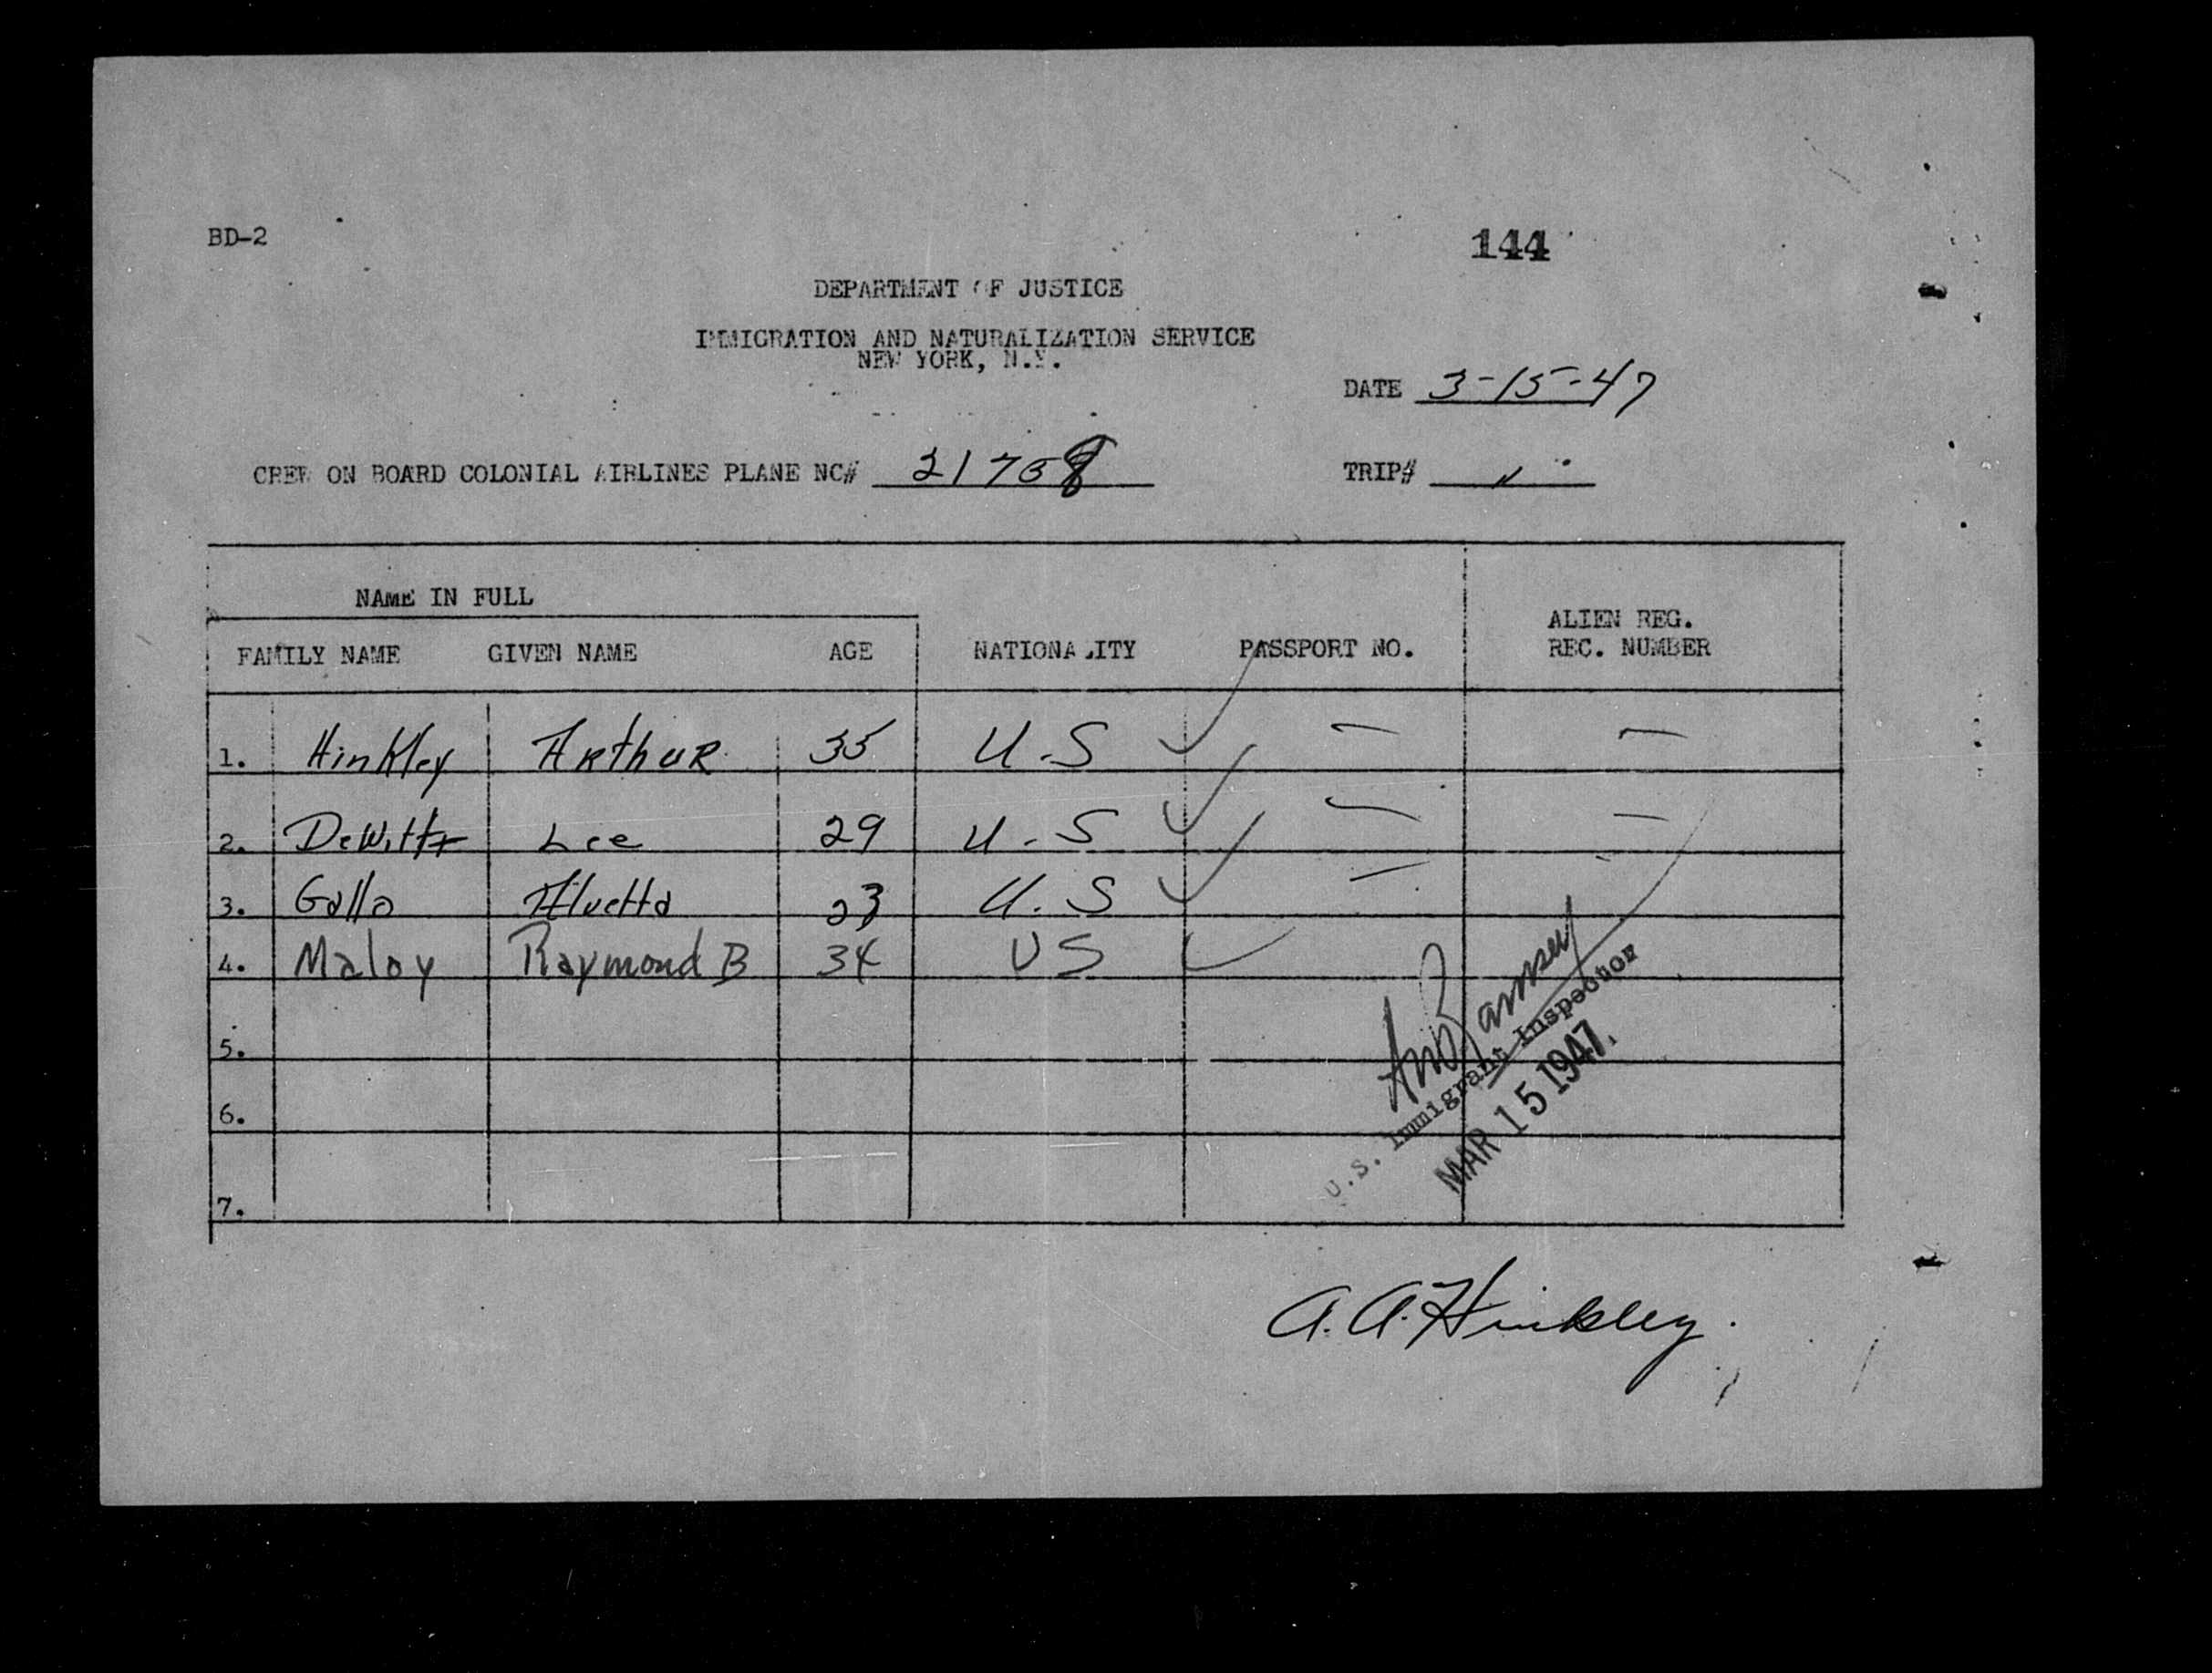 BD-2
144
DEPARTMENT OF JUSTICE
IMMIGRATION AND NATURALIZATION SERVICE
NEW YORK, N.Y.
DATE 3-15-47
CREW ON BOARD COLONIAL AIRLINES PLANE NC# 21758
TRIP#
NAME IN FULL
FAMILY NAME GIVEN NAME AGE NATIONALITY PASSPORT NO. ALIEN REG. REC. NUMBER
1. Hinkley Arthur 35 U.S ✓ — —
2. DeWitt Lee 29 U.S ✓ — —
3. Gallo 23 U.S ✓ —
4. Maloy Raymond B 34 US ✓
5.
6.
7.
U.S. Immigrant Inspector
MAR 15 1947
A. A. Hinkley.